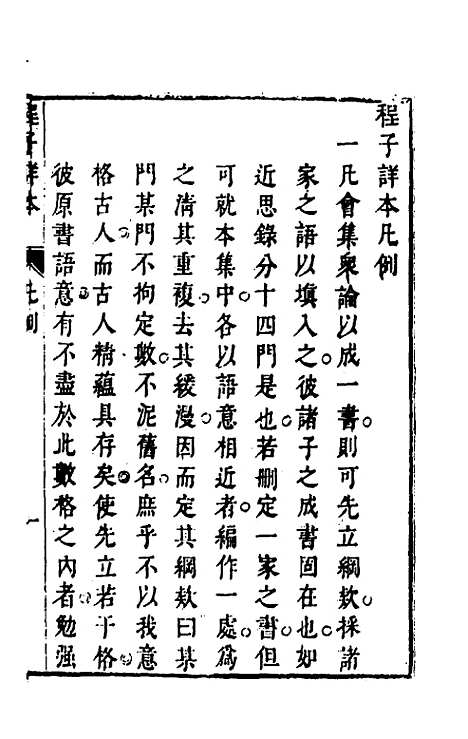 程子詳本凡例
一凡會集衆論以成一書。則可先立綱欵。採諸
家之語以塡入之。彼諸子之成書固在也。如
近思錄分十四門是也。若刪定一家之書。但
可就本集中。各以語意相近者。編作一處。爲
之淸其重複。去其緩漫。因而定其綱欵曰某
門某門不拘定數。不泥舊名。庶乎不以我意
格古人。而古人精蘊具存矣。使先立若干格
彼原書語意。有不盡於此數格之內者。勉强
程子詳本 凡例 一